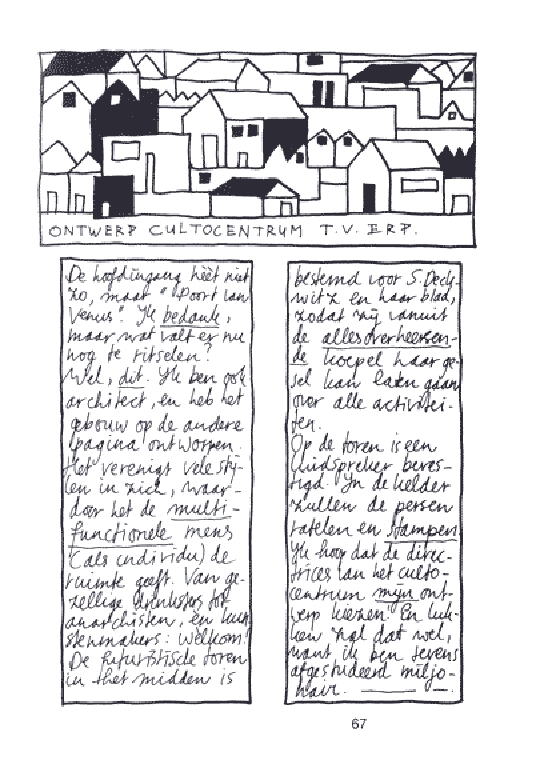 ONTWERP CULTOCENTRUM T.V. ERP.
De hoofdingang héét niet
zo, maar "Poort van
Venus". Ik bedank,
maar wat valt er nu
nog te ritselen?
Wel, dit. Ik ben ook
architect, en heb het
gebouw op de andere
pagina ontworpen.
Het verenigt vele stij-
len in zich, waar-
door het de multi-
functionele mens
(als individu) de
ruimte geeft. Van ge-
zellige tot
anarchisten, en kun
stenmakers: Welkom!
De futuristische toren
in het midden is
bestemd voor S. Deck-
witz en haar blad,
zodat zij vanuit
de allesoverheersen-
de koepel haar ge-
sel kan laten gaan
over alle activitei-
ten.
Op de toren is een
luidspreker beves-
tigd. In de kelder
zullen de persen
ratelen en stampen.
Ik hoop dat de direc-
trices van het culto-
centrum mijn ont-
werp kiezen! En luk-
ken zal dat wel,
want ik ben tevens
afgestudeerd miljo-
nair.
67